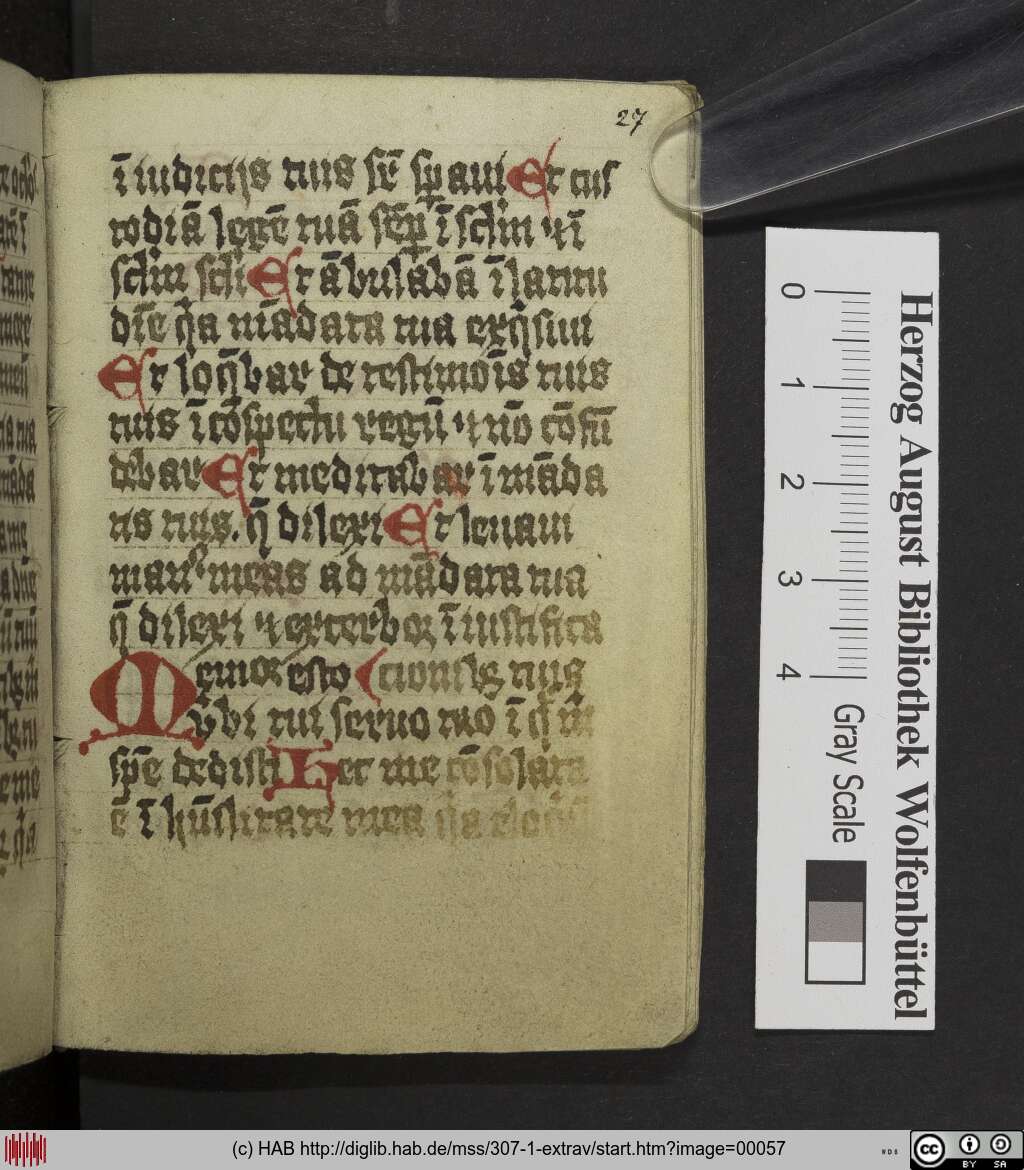 27
ī iudicijs tuis sr̄ sꝑaui Et cus
todiā legē tuā sēꝑ ī sclm̄ ⁊ ī
sclm̄ scli Et ābulabā ī latitu
dīe q̄a mādata tua exq̄siui
Et loq̄bar de testimōīs tuis
tuis ī cōspectu regū ⁊ nō cōfū
debar Et meditabar ī māda
tis tuis. q̄ dilexi Et leuaui
man⁹ meas ad mādata tua
q̄ dilexi ⁊ excerbor ī iustifica
Memor esto (tionibꝫ tuis
v̄bi tui seruo tuo ī q̊ m̄
spē dedisti Hec me cōsolata
ē ī hūilitate mea q̄a
0 1 2 3 4
Gray Scale
Herzog August Bibliothek Wolfenbüttel
(c) HAB http://diglib.hab.de/mss/307-1-extrav/start.htm?image=00057
cc BY SA